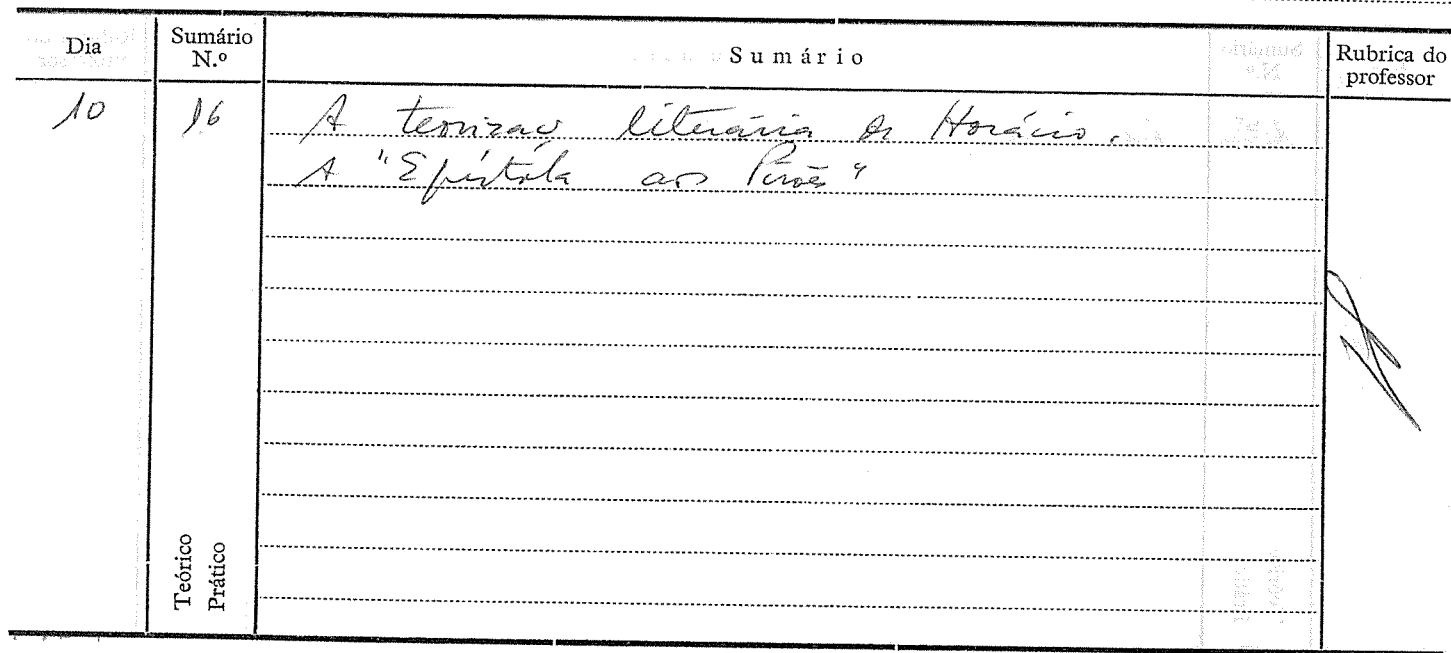 Dia
Sumário N.º
Sumário
Rubrica do professor
10
16
A teorização literária de Horácio.
A "Epístola aos Pisões"
Teórico
Prático